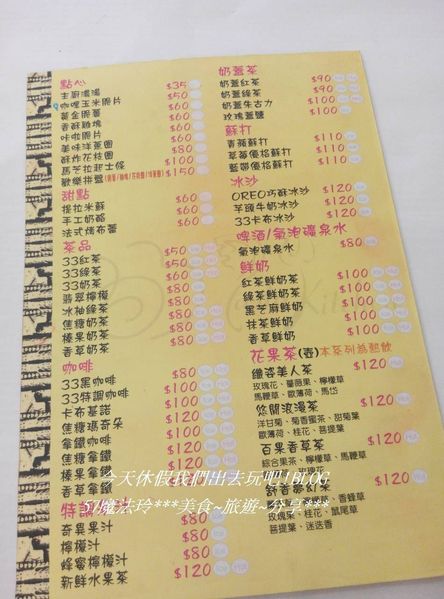 點心
主廚濃湯 $35
咖哩玉米脆片 $50
黃金脆薯 $60
香酥雞塊 $60
咔啦脆片 $60
美味洋蔥圈 $60
酥炸花枝圈 $60
莎拉起士條 $100
歡樂拼盤 $150
甜點
提拉米蘇 $60
手工奶酪 $60
法式烤布蕾 $60
茶品
33紅茶 $50
33綠茶 $50
33奶茶 $60
翡翠檸檬 $80
冰柚綠茶 $80
焦糖奶茶 $80
榛果奶茶 $80
香草奶茶 $80
咖啡
33黑咖啡 $80
33特調咖啡 $100
卡布基諾 $100
焦糖瑪奇朵 $100
拿鐵咖啡 $100
焦糖拿鐵 $120
榛果拿鐵 $120
香草拿鐵 $120
奇異果汁 $80
檸檬汁 $80
蜂蜜檸檬汁 $80
新鮮水果茶 $120
奶蓋茶
奶蓋紅茶 $90
奶蓋綠茶 $90
奶蓋朱古力 $100
玫瑰蓋鹽 $100
蘇打
青蘋蘇打 $110
草莓優格蘇打 $110
藍莓優格蘇打 $110
冰沙
OREO巧酥冰沙 $120
芋頭牛奶冰沙 $120
33卡布冰沙 $120
啤酒/氣泡礦泉水
氣泡礦泉水 $80
鮮奶
紅茶鮮奶茶 $100
綠茶鮮奶茶 $100
黑芝麻鮮奶 $100
抹茶鮮奶 $100
香草鮮奶 $100
花果茶(壺)本茶列為熱飲
纖姿美人茶 $120
玫瑰花、薔薇果、檸檬草
馬鞭草、歐薄荷、馬岱
悠閒浪漫茶 $120
洋甘菊、菊香蜜茶、甜菊葉
歐薄荷、桂花、菩提葉
百果香草茶 $120
綜合果茶、檸檬草、馬鞭草
$120
香蜂草
玫瑰果、桂花、鼠尾草
菩提葉、迷迭香
今天休假我們出去玩吧!BLOG
51魔法玲***美食~旅遊~分享***